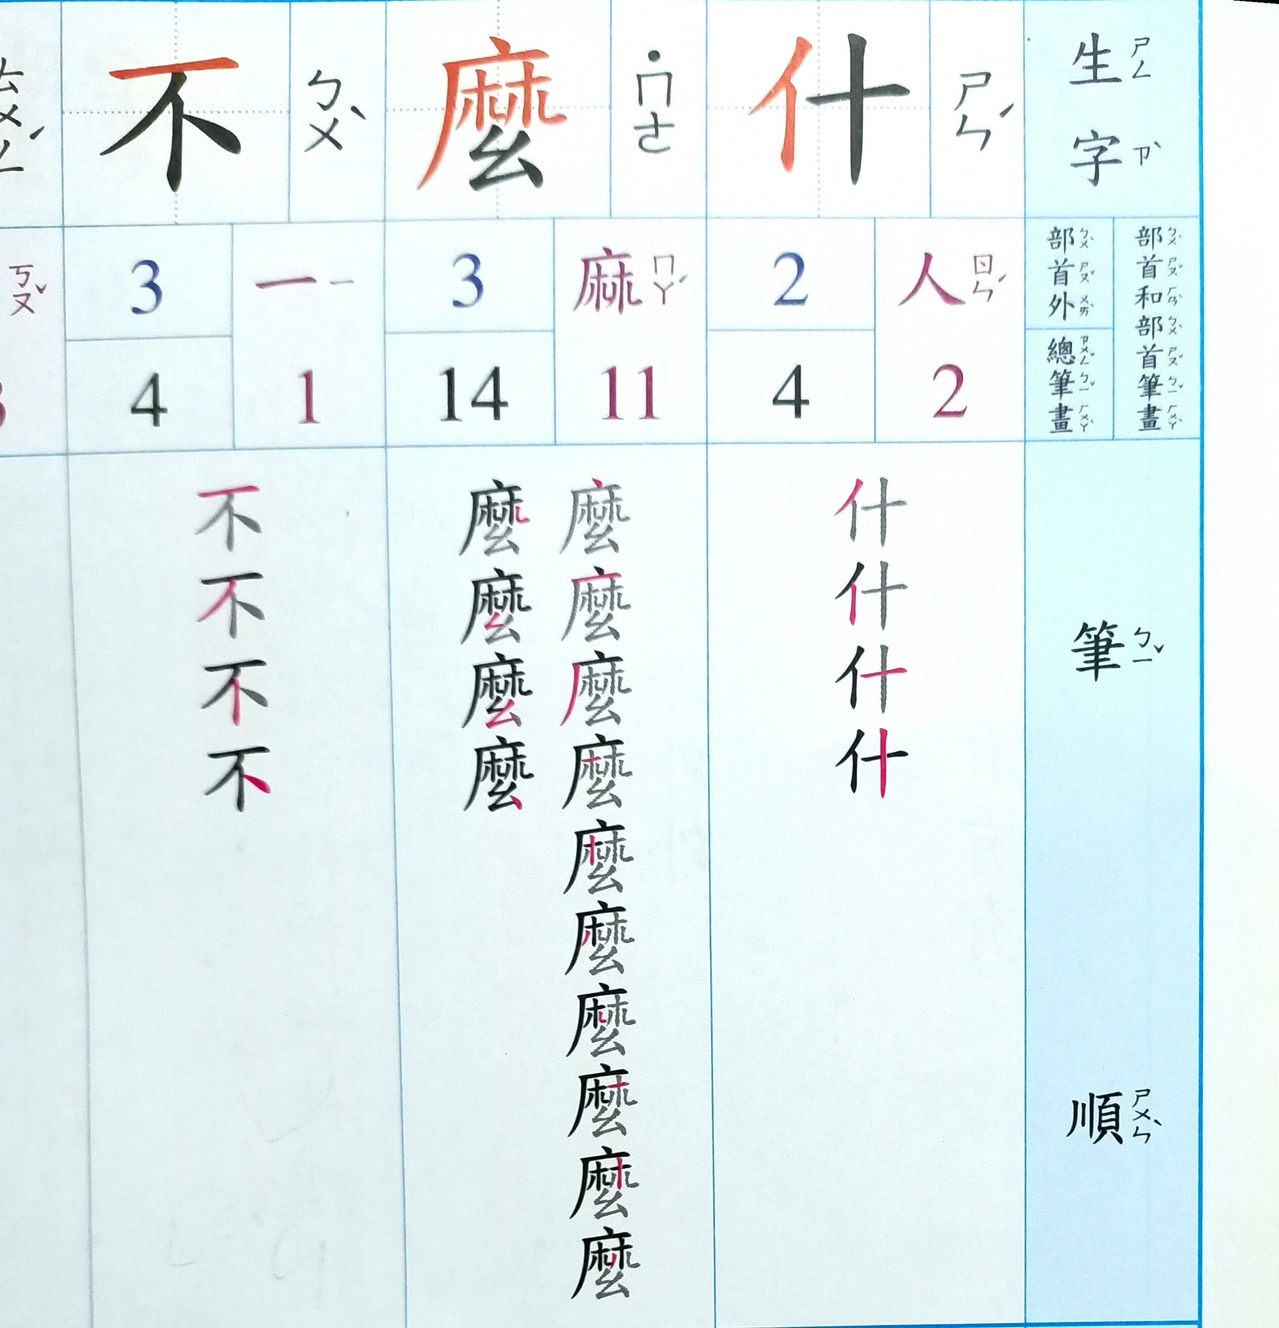 生ㄕㄥ字ㄗˋ
部ㄅㄨˋ首ㄕㄡˇ和ㄏㄢˋ部ㄅㄨˋ首ㄕㄡˇ筆ㄅㄧˇ畫ㄏㄨㄚˋ
部ㄅㄨˋ首ㄕㄡˇ外ㄨㄞˋ
總ㄗㄨㄥˇ筆ㄅㄧˇ畫ㄏㄨㄚˋ
筆ㄅㄧˇ順ㄕㄨㄣˋ
什ㄕㄣˊ
人ㄖㄣˊ
2
2
4
什
什
什
什
麼˙ㄇㄜ
麻ㄇㄚˊ
11
3
14
麼
麼
麼
麼
麼
麼
麼
麼
麼
麼
麼
麼
麼
麼
不ㄅㄨˋ
一ㄧ
1
3
4
不
不
不
不
ㄎㄡˇ